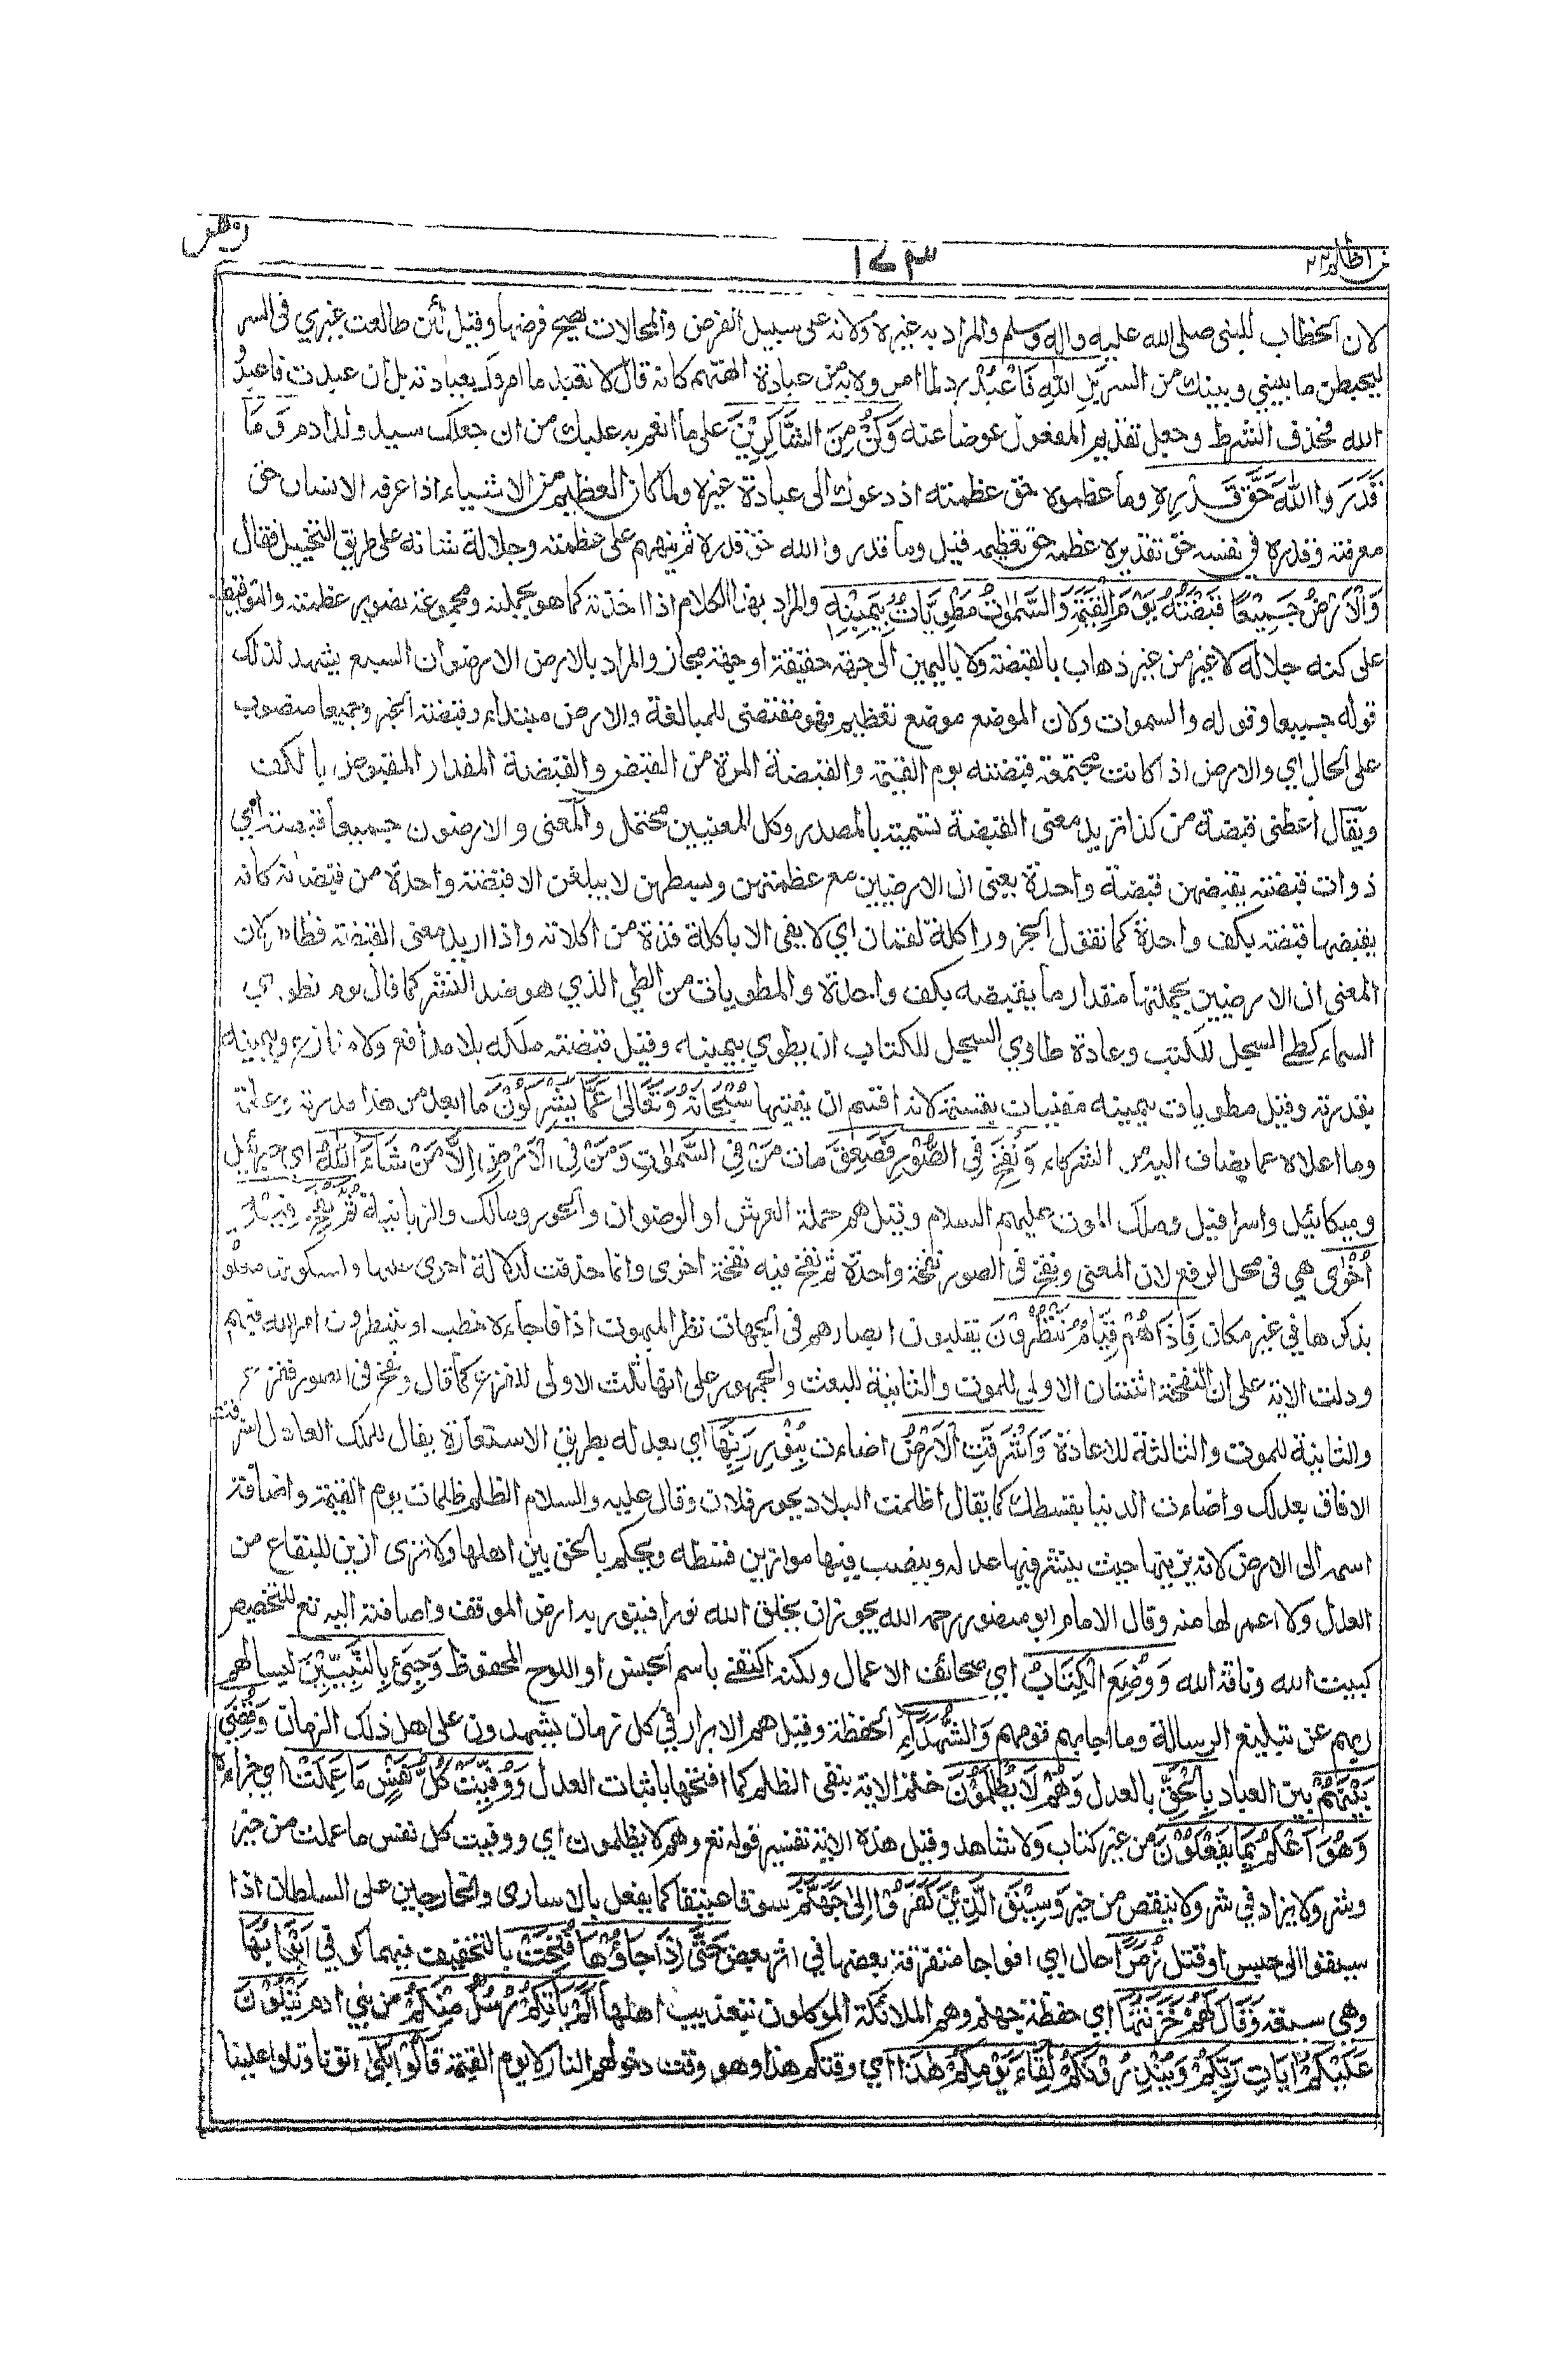 فمن اظلم ٢٤
١٧٣
لان الخطاب للنبى صلى الله عليه واله وسلم والمراد به غيره ولانه على سبيل الفرض والمحالات يصح فرضها وقيل لئن طالعت غيري فى السر
ليحبطن ما بيني وبينك من السر بَلِ اللهَ فَاعْبُدْ رد لما امروه به من عبادة الهتهم كانه قال لا تعبد ما امروك بعبادته بل ان عبدت فاعبد
الله فحذف الشرط وجعل تقديم المفعول عوضا عنه وَكُنْ مِنَ الشَّاكِرِيْنَ على ما انعم به عليك من ان جعلك سيد ولد ادم وَ مَا
قَدَرَ وا اللهَ حَقَّ قَدْرِهٖ وما عظموه حق عظمته اذ دعوك الى عبادة غيره ولما كان العظيم من الاشياء اذا عرفه الانسان حق
معرفته وقدره في نفسه حق تقديره عظمه حق تعظيمه قيل وما قدر وا الله حق قدره ثم نبههم على عظمته وجلالة شانه على طريق التخييل فقال
وَالْاَرْضُ جَمِيْعًا قَبْضَتُهُ يَوْ مَ الْقِيٰمَةِ وَالسَّمٰوٰتُ مَطْوِيَّاتٌ بِيَمِيْنِهٖ والمراد بهذا الكلام اذا اخذته كما هو بجملته ومجموعه تصوير عظمته والتوقيف
على كنه جلاله لا غير من غير ذهاب بالقبضة ولا باليمين الى جهة حقيقة او جهة مجاز والمراد بالارض الارضون السبع يشهد لذلك
قوله جميعا وقوله والسموات ولان الموضع موضع تعظيم وهو مقتضى للمبالغة والارض مبتداء وقبضته الخبر وجميعا منصوب
على الحال اي والارض اذا كانت مجتمعة قبضته يوم القيمة والقبضة المرة من القبض والقبضة المقدار المقبوض بالكف
ويقال اعطنى قبضة من كذا تريد معنى القبضة تسمية بالمصدر وكل المعنيين محتمل والمعنى والارضون جميعا قبضته اي
ذوات قبضته يقبضهن قبضة واحدة يعنى ان الارضين مع عظمتهن وبسطهن لا يبلغن الا قبضة واحدة من قبضاته كانه
يقبضها قبضة بكف واحدة كما تقول الجزور اكلة لقمان اي لا يفى الا باكلة فذة من اكلاته واذا اريد معنى القبضة فظاهر لان
المعنى ان الارضين بجملتها مقدار ما يقبضه بكف واحدة والمطويات من الطي الذي هو ضد النشر كما قال يوم نطوي
السماء كطي السجل للكتب وعادة طاوي السجل للكتاب ان يطوي بيمينه وقيل قبضته ملكه بلا مدافع ولا منازع وبيمينه
بقدرته وقيل مطويات بيمينه مفنيات بقسمه لانه اقسم ان يفنيها سُبْحَانَهُ وَتَعَالٰى عَمَّا يُشْرِكُوْنَ ما ابعد من هذا قدرته وعظمته
وما اعلاه عما يضاف اليه من الشركاء وَنُفِخَ فِى الصُّوْرِ فَصَعِقَ مات مَنْ فِى السَّمٰوٰتِ وَمَنْ فِى الْاَرْضِ اِلَّا مَنْ شَاءَ اللهُ اى جبرئيل
وميكائيل واسرافيل وملك الموت عليهم السلام وقيل هم حملة العرش او الرضوان والحور ومالك والزبانية ثُمَّ نُفِخَ فِيْهِ
اُخْرٰى هي فى محل الرفع لان المعنى ونفخ فى الصور نفخة واحدة ثم نفخ فيه نفخة اخرى وانما حذفت لدلالة اخرى عليها ولكونها معلومة
بذكرها في غير مكان فَاِذَا هُمْ قِيَامٌ يَّنْظُرُوْنَ يقلبون ابصارهم فى الجهات نظر المبهوت اذا فاجاه خطب او ينتظرون امر الله فيهم
ودلت الاية على ان النفخة اثنتان الاولى للموت والثانية للبعث والجمهور على انها ثلث الاولى للفزع كما قال ونفخ فى الصور ففزع
والثانية للموت والثالثة للاعادة وَاَشْرَقَتِ الْاَرْضُ اضاءت بِنُوْرِ رَبِّهَا اي بعدله بطريق الاستعارة يقال للملك العادل اشرقت
الافاق بعدلك واضاءت الدنيا بقسطك كما يقال اظلمت البلاد بجور فلان وقال عليه والسلام الظلم ظلمات يوم القيمة واضافة
اسمه الى الارض لانه يزينها حيث ينشر فيها عدله وينصب فيها موازين قسطه ويحكم بالحق بين اهلها ولا نزى ازين للبقاع من
العدل ولا اعمر لها منه وقال الامام ابو منصور رحمه الله يجوز ان يخلق الله نورا فينور به ارض الموقف واضافته اليه تع للتخصيص
كبيت الله وناقة الله وَوُضِعَ الْكِتَابُ اي صحائف الاعمال ولكنه اكتفے باسم الجنس او اللوح المحفوظ وَجِئَ بِالنَّبِيّٖنَ ليسالهم
ربهم عن تبليغ الرسالة وما اجابهم قومهم وَالشُّهَدَاءِ الحفظة وقيل هم الابرار في كل زمان يشهدون على اهل ذلك الزمان وَقُضِيَ
بَيْنَهُمْ بين العباد بِالْحَقِّ بالعدل وَهُمْ لَا يُظْلَمُوْنَ ختم الاية بنفى الظلم كما افتتحها باثبات العدل وَوُفِّيَتْ كُلُّ نَفْسٍ مَا عَمِلَتْ اي جزاءه
وَهُوَ اَعْلَمُ بِمَا يَفْعَلُوْنَ من غير كتاب ولا شاهد وقيل هذه الاية تفسير قوله تع وهم لا يظلمون اي ووفيت كل نفس ما عملت من خير
وشر ولا يزاد في شر ولا ينقص من خير وَسِيْقَ الَّذِيْنَ كَفَرُوْا اِلٰى جَهَنَّمَ سوقا عنيفا كما يفعل بالاسارى والخارجين على السلطان اذا
سيقوا الى حبس او قتل زُمَرًا حال اي افواجا متفرقة بعضها في اثر بعض حَتّٰى اِذَا جَاؤُهَا فُتِحَتْ بالتخفيف فيهما كوفي اَبْوَابُهَا
وهي سبعة وَقَالَ لَهُمْ خَزَنَتُهَا اي حفظة جهنم وهم الملائكة الموكلون بتعذيب اهلها اَلَمْ يَاْتِكُمْ رُسُلٌ مِنْكُمْ من بني ادم يَتْلُوْنَ
عَلَيْكُمْ اٰيَاتِ رَبِّكُمْ وَيُنْذِرُوْنَكُمْ لِقَاءَ يَوْمِكُمْ هٰذَا اي وقتكم هذا وهو وقت دخولهم النار لا يوم القيمة قَالُوْا بَلٰى اتونا وتلوا علينا